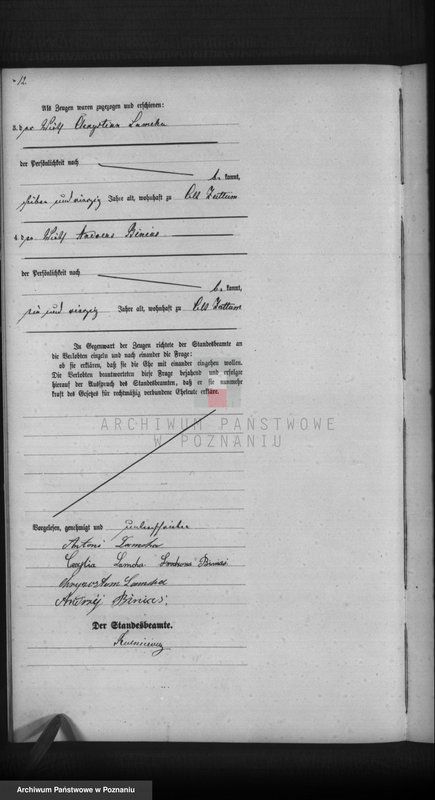 12.
Als Zeugen waren zugezogen und erschienen:
3. der Wirth Lamcha
der Persönlichkeit nach
be kannt,
sieben und vierzig Jahre alt, wohnhaft zu
4. der Wirth Andreas Binias
der Persönlichkeit nach
be kannt,
und vierzig Jahre alt, wohnhaft zu
In Gegenwart der Zeugen richtete der Standesbeamte an
die Verlobten einzeln und nach einander die Frage:
ob sie erklären, daß sie die Ehe mit einander eingehen wollen.
Die Verlobten beantworteten diese Frage bejahend und erfolgte
hierauf der Ausspruch des Standesbeamten, daß er sie nunmehr
kraft des Gesetzes für rechtmäßig verbundene Eheleute erkläre.
ARCHIWUM PAŃSTWOWE
W POZNANIU
Vorgelesen, genehmigt und unterschrieben
Antoni Lamcha
Lamcha Binias
Lamcha
Andrzej Binias.
Der Standesbeamte.
Archiwum Państwowe w Poznaniu